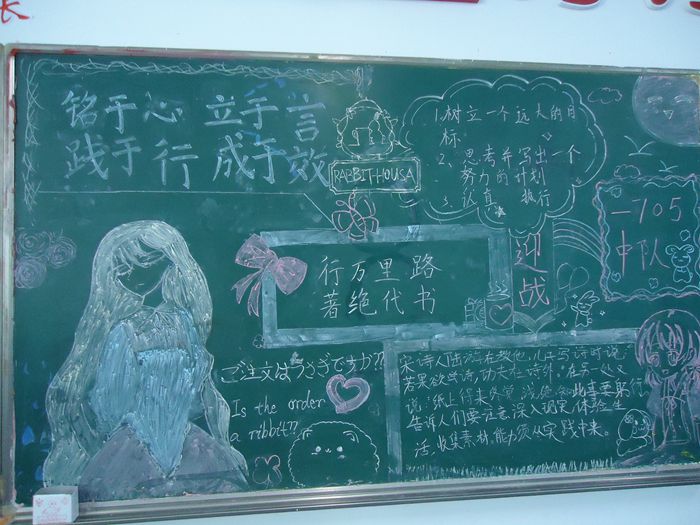 长
铭于心 立于言
践于行 成于效
RABBIT HOUSA
1.树立一个远大的目
标
2、思考并写出一个
努力的计划
3、认真 执行
一705
中队
迎
战
行万里路
著绝代书
ご注文はうさぎですか??
Is the order
a ribbit??
宋诗人陆游在教他儿子写诗时说
若果欲学诗,功夫在诗外。在另一处又
说"纸上得来终觉浅,绝知此事要躬行
告诉人们要注意深入现实,体验生
活,收集素材,能力须从实践中来。